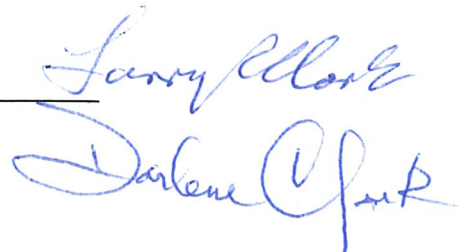 Larry Clark
Darlene Clark